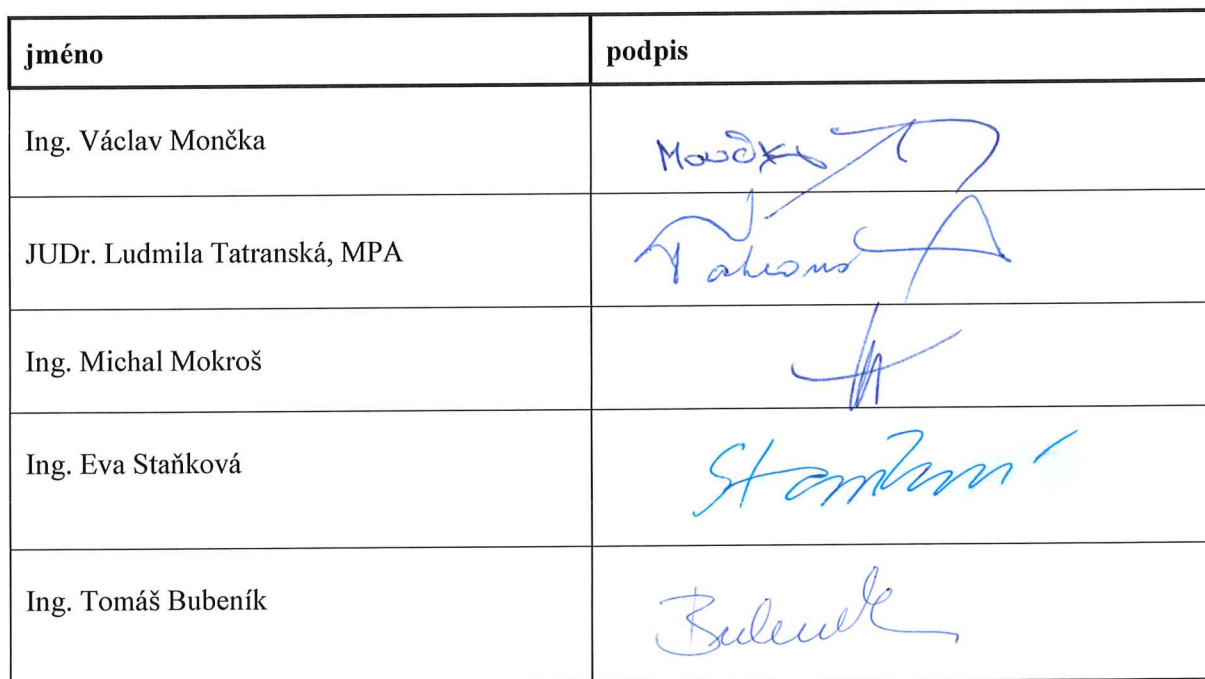 jméno podpis
Ing. Václav Mončka Mončka
JUDr. Ludmila Tatranská, MPA
Ing. Michal Mokroš
Ing. Eva Staňková
Ing. Tomáš Bubeník